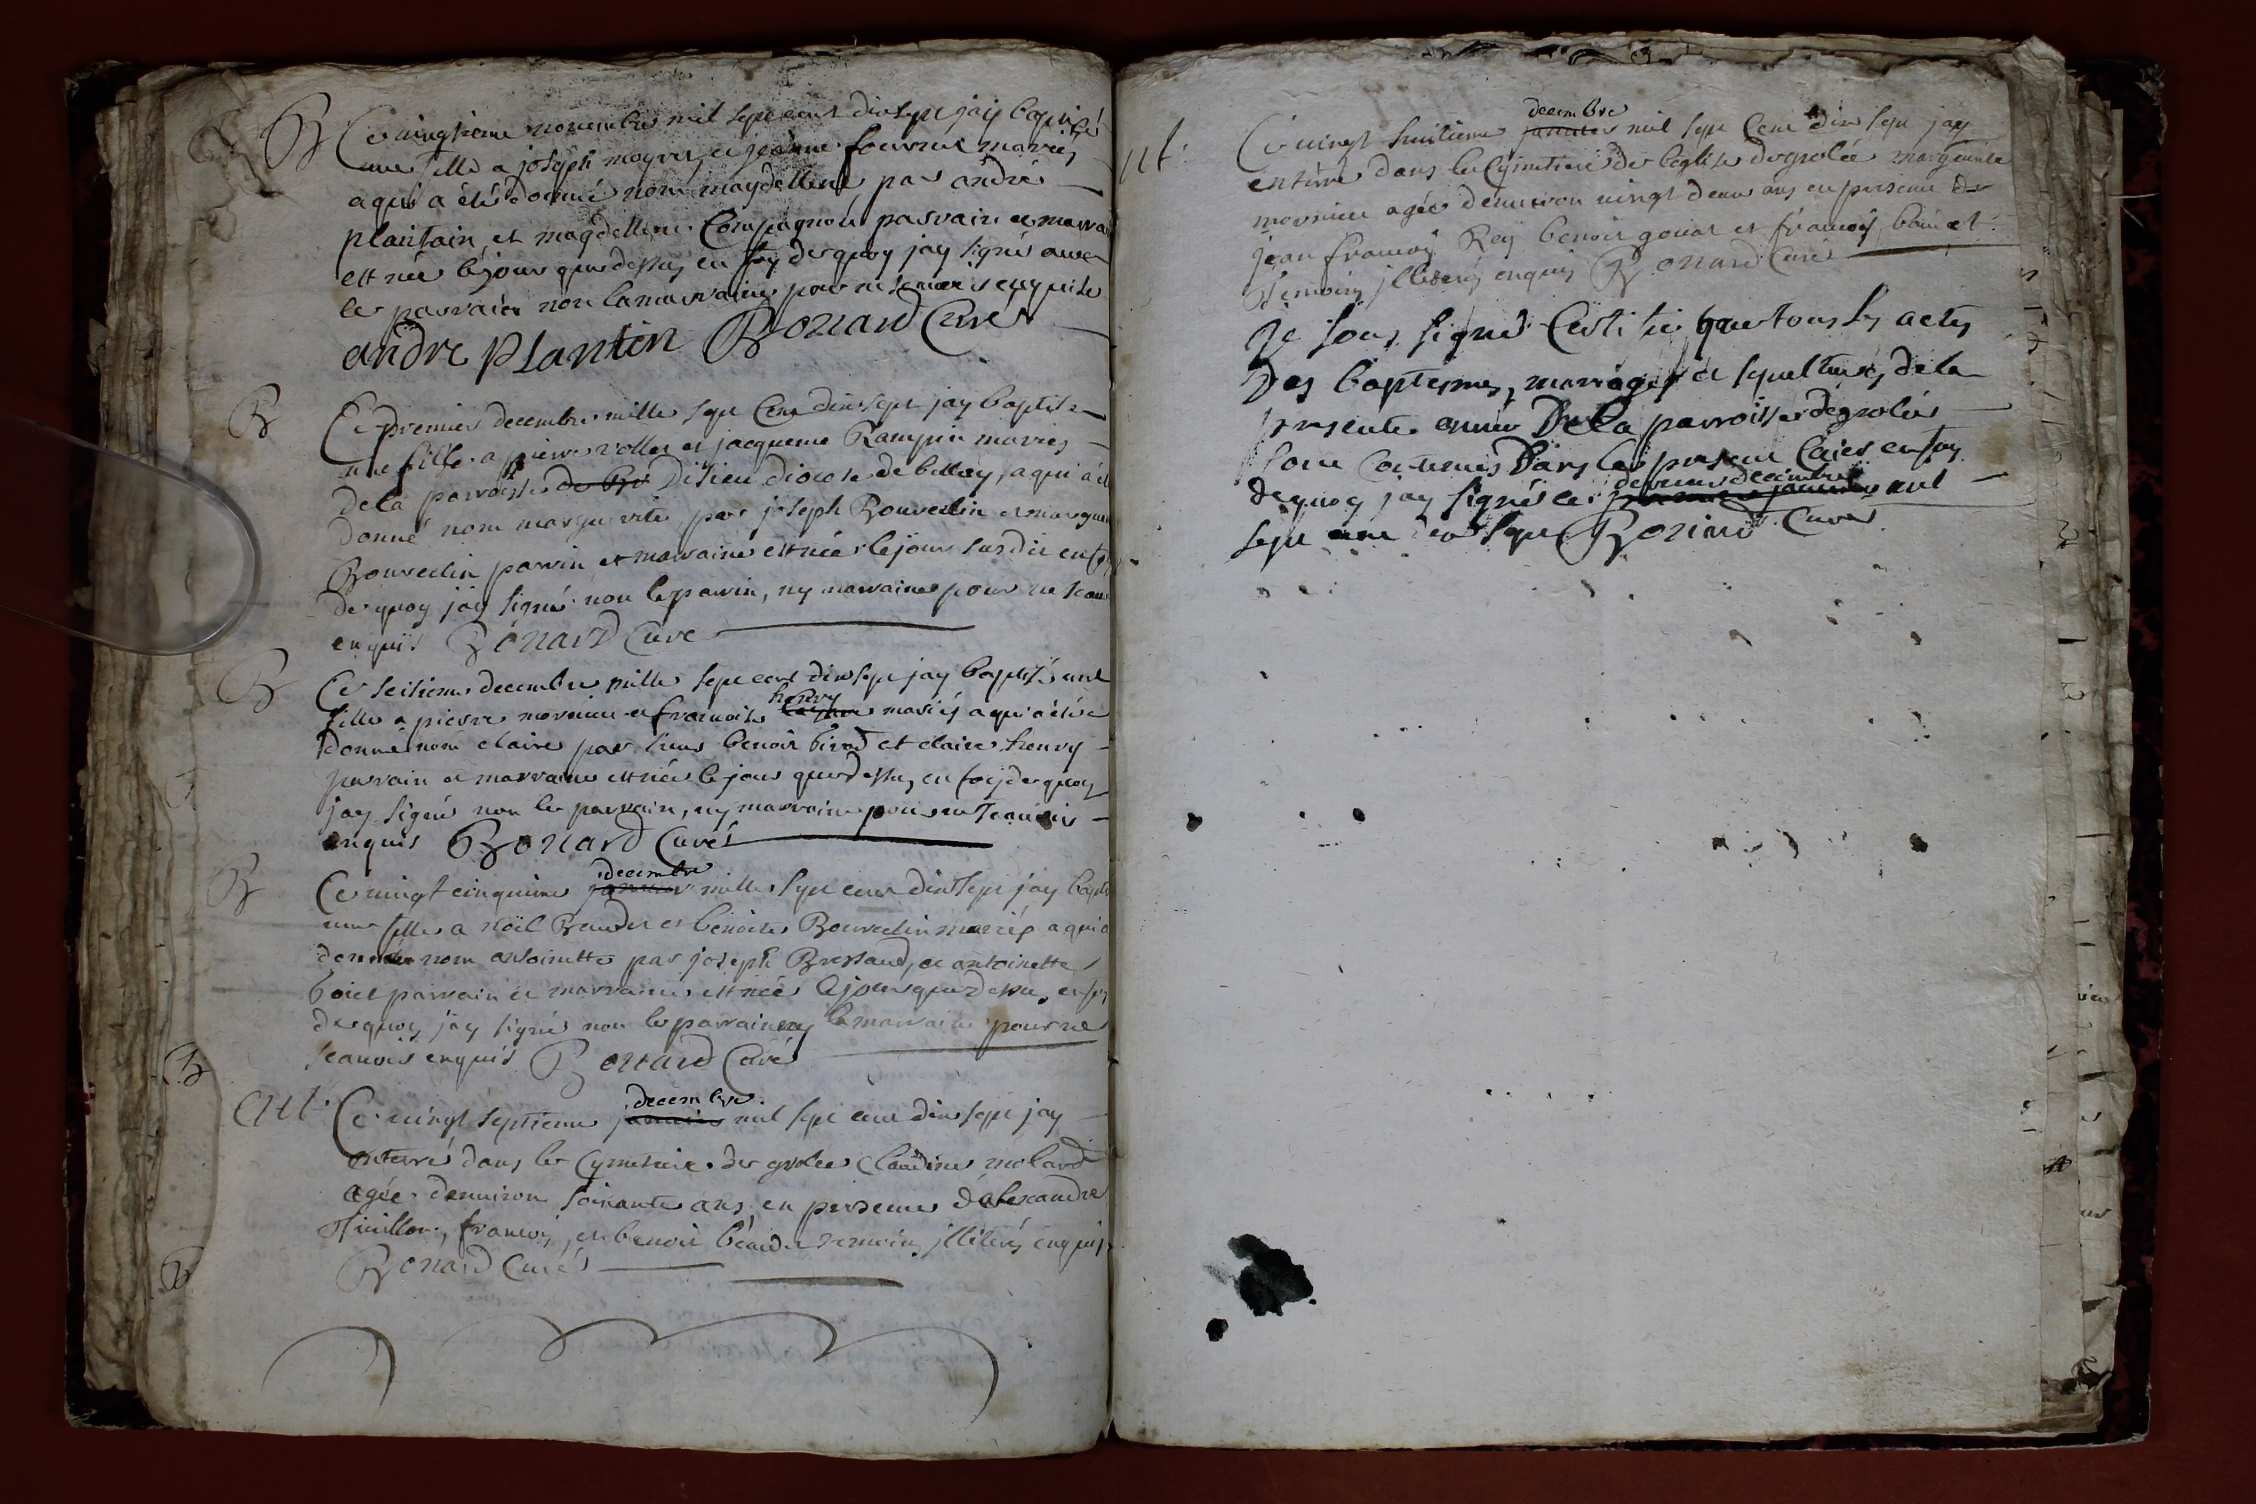 B Ce vingtieme novembre mil sept cent dixsept jay baptisé
une fille a joseph et jeanne mariés
a qui a été donné nom maydellene par andré
plantain, et magdellene Compagnon parrain et marra
est née le jour que dessus en foy de quoy jay signé avec
le parrain non la marraine pour ne scavoir enquise
andre PLantin Bonard Curé
B Ce premier decembre mille sept Cent dixsept jay baptisé
une fille a pierre vollet et jacqueme Rampin mariés
de la parroisse de Disieu diocese de bellay, a qui a été
donné nom marguerite, par joseph Bourdin et margue
Bourdin parrin et marraine est née le jour susdit en foy
de quoy jay signé non le parrin, ny marraine pour ne scav
enquis Bonard Curé
B Ce seisieme decembre mille sept cent dixsept jay baptisé une
fille a pierre mornieu et francoise henry mariés a qui a été
donné nom claire par sieur benoit birod et claire henry
parrain et marraine est née le jour que dessus, en foy de quoy
jay signé non le parrain, ny marraine pour ne scavoir
enquis Bonard Curé
B Ce vingt cinquieme janvier decembre mille sept cent dixsept jay bapti
une fille a noël et benoite mariés a qui a
donné nom antoinette par joseph Bressand, et antoinette
parrain et marraine est née le jour que dessu, en foy
de quoy jay signé non le parrain ny la marraine pour ne
scavoir enquis Bonard Curé
Ce vingt septieme janvier decembre mil sept cent dix sept jay
enterré dans le Cymetiere de grolee Claudine molard
agée denviron soixante ans, en presence d'alexandre
francois, et benoit temoins illiterés enquis
Bonard Curé
Ce vingt huitieme janvier decembre mil sept Cent dix sept jay
enterré dans le Cymetiere de leglise de grolée marguerite
mornieu agée denviron vingt deux ans en presence de
jean francois Rey benoit gouat et francois
temoins illiterés enquis Bonard Curé
Je sous signé Certifie que tous les actes
Des baptesmes, mariages et sepultures, de la
presente année De la parroisse de grolée
sont contenus Dans le present Caier en foy
de quoy jay signé ce decembre mil
sept cent dix sept Bonard Curé